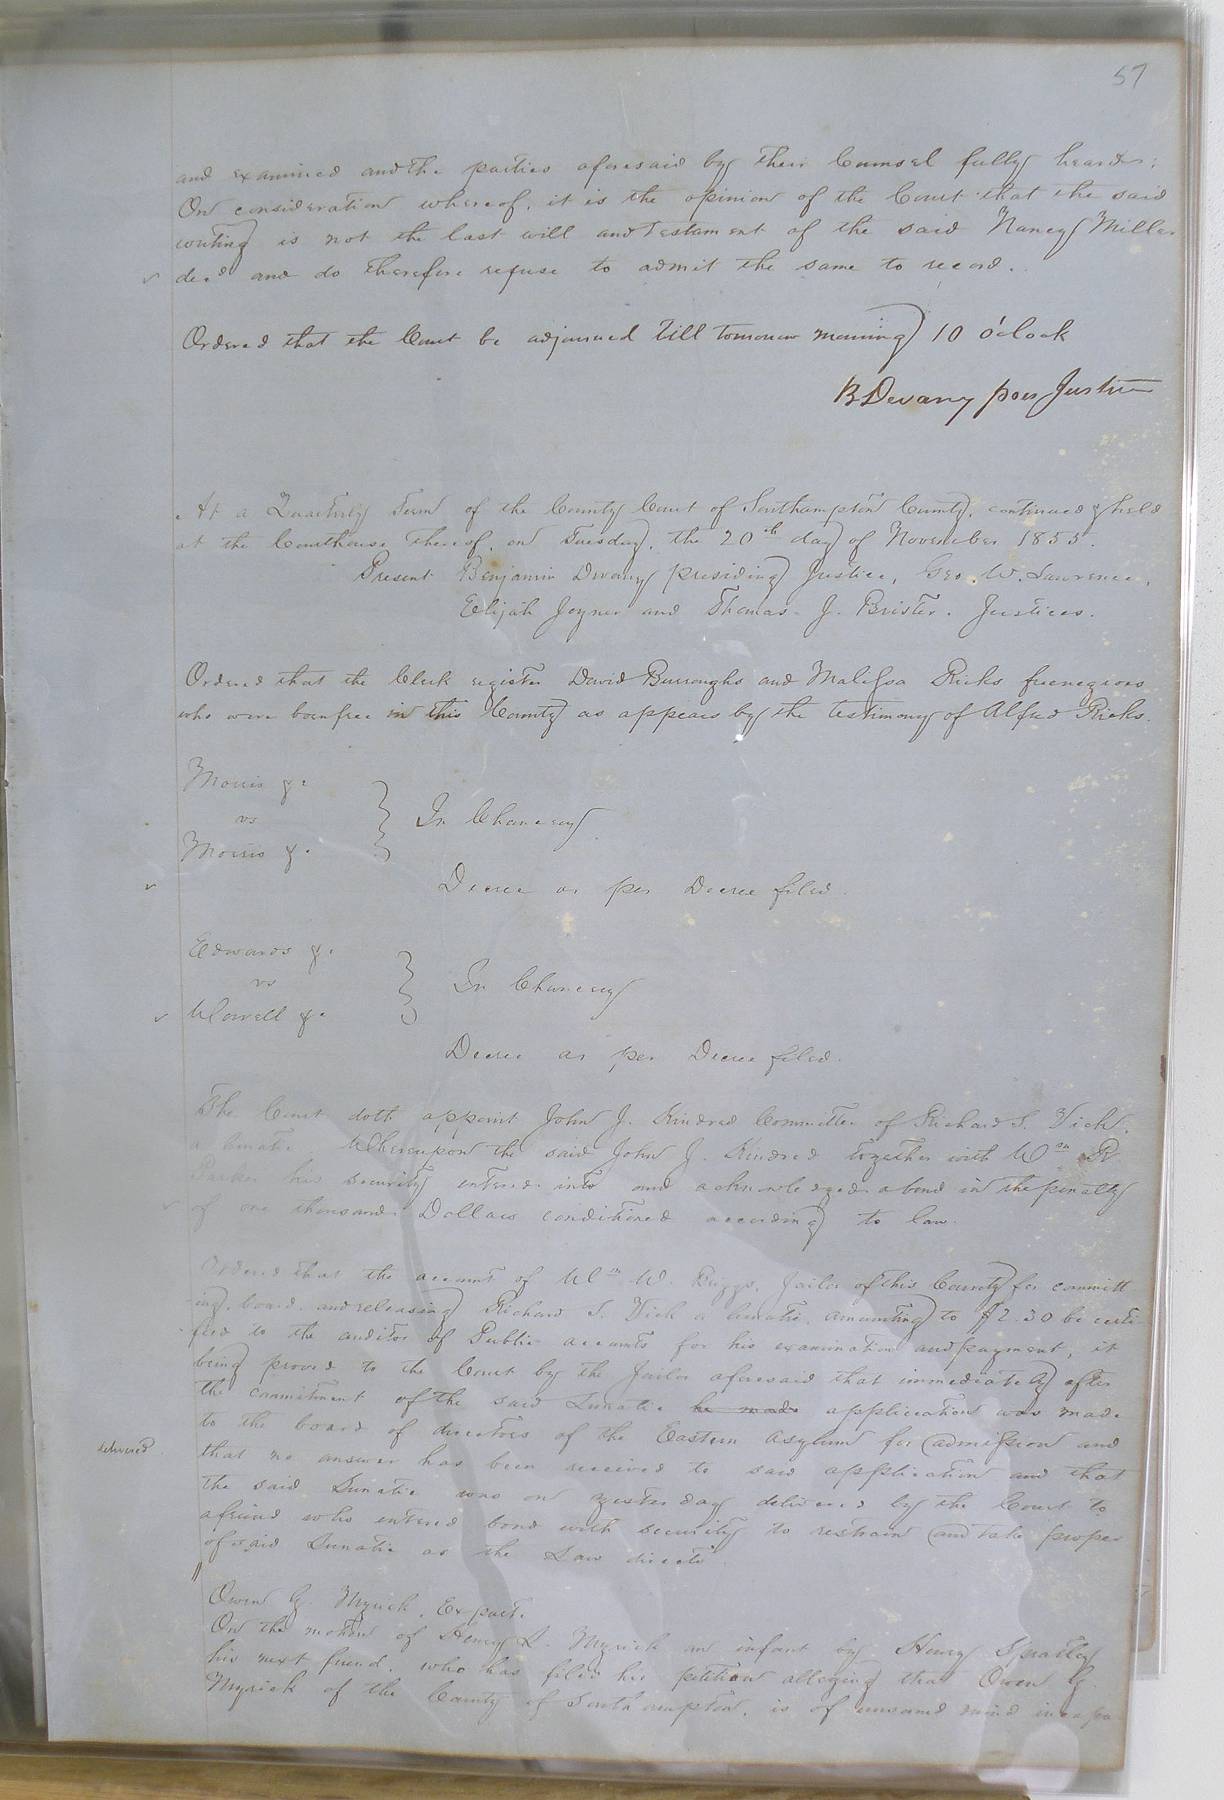 57
and examined and the parties aforesaid by their Counsel fully heard:
On consideration whereof, it is the opinion of the Court that the said
writing is not the last will and Testament of the said Nancy Miller
decd and do therefore refuse to admit the same to record.
Ordered that the Court be adjourned till tomorrow morning 10 o'clock
B Devany pres Justice
At a Quarterly Term of the County Court of Southampton County, continued & held
at the Courthouse thereof, on Tuesday, the 20th day of November 1855.
Present Benjamin Devany presiding Justice, Geo. W. Lawrence,
Elijah Joyner and Thomas J. Brister. Justices.
Ordered that the Clerk register David Burroughs and Malissa Ricks freenegroes
who were bornfree in this County as appears by the testimony of Alfred Ricks.
Morris &c
vs
Morris &c
In Chancery
Decree as per Decree filed.
Edwards &c
vs
Worrell &c
In Chancery
Decree as per Decree filed.
The Court doth appoint John J. Kindred Committee of Richard S. Vick,
a lunatic. Whereupon the said John J. Kindred together with Wm R
his security entered into and acknowledged a bond in the penalty
of one thousand Dollars conditioned according to law.
Ordered that the account of Wm W. Briggs, Jailor of this County for committ
ing, board, and releasing Richard S. Vick a lunatic, amounting to $2.30 be certi
fied to the auditor of Public accounts for his examination and payment, it
being proved to the Court by the Jailor aforesaid that immediately after
the commitment of the said Lunatic he made application was made
to the board of directors of the Eastern Asylum for admission and
that no answer has been received to said application and that
the said Lunatic was on yesterday delivered by the Court to
a friend who entered bond with security to restrain and take proper
of said Lunatic as the Law directs.
delivered
Owen G. Myrick, Exparte
On the motion of Henry L. Myrick an infant by Henry Spratley
his next friend, who has filed his petition alleging that Owen G.
Myrick of the County of Southampton, is of unsound mind incapa